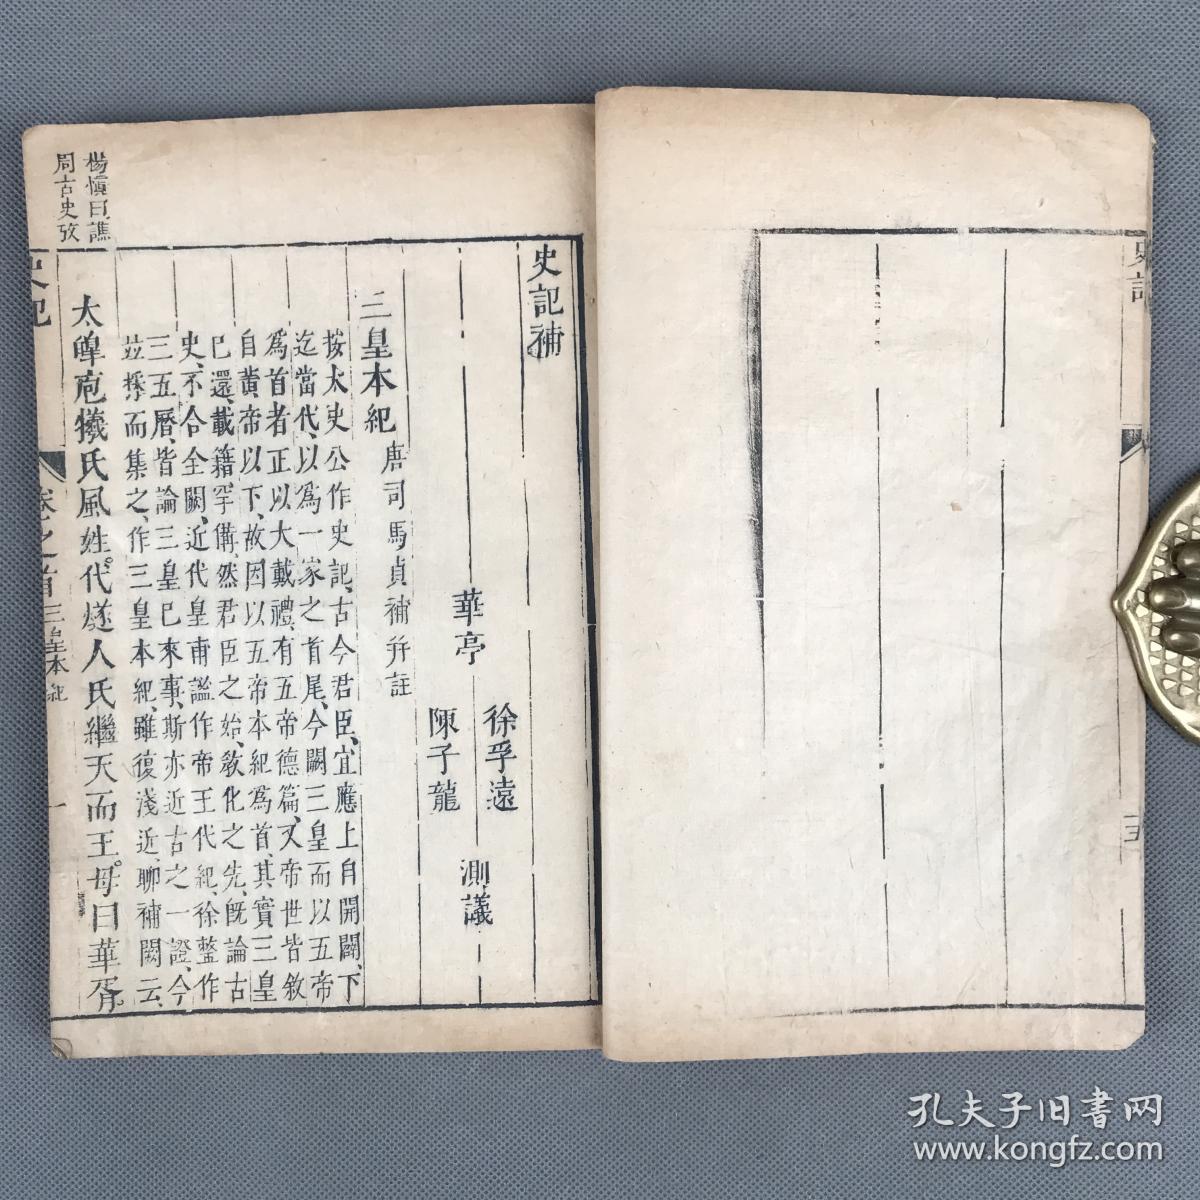 史記
三五
史記補
華亭
徐孚遠
陳子龍
測議
三皇本紀
唐司馬貞補并註
按太史公作史記、古今君臣、宜應上自開闢、下
迄當代、以爲一家之首尾、今闕三皇而以五帝
爲首者、正以大戴禮、有五帝德篇、又帝世皆敘
自黃帝以下、故因以五帝本紀爲首、其實三皇
已還、載籍罕備、然君臣之始、敎化之先、旣論古
史、不合全闕、近代皇甫謐作帝王代紀、徐整作
三五曆、皆論三皇已來事、斯亦近古之一證、今
竝採而集之、作三皇本紀、雖復淺近、聊補闕云、
太皥庖犧氏風姓。代燧人氏繼天而王。母曰華胥。
楊愼曰譙
周古史攷
史記
卷之首
三皇本紀
一
孔夫子旧書网
www.kongfz.com